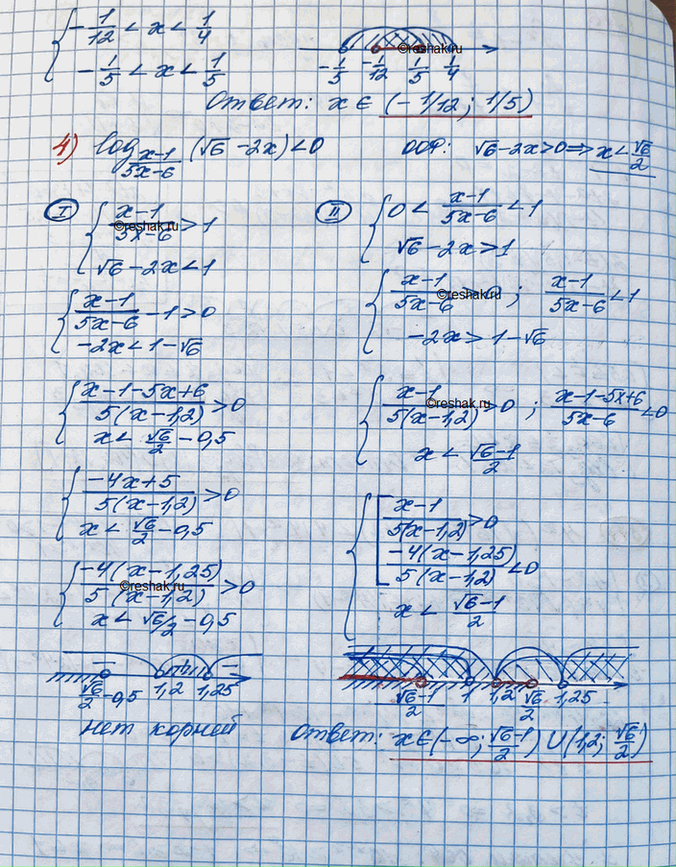 { -1/12 < x < 1/4
-1/5 < x < 1/5
-1/5 -1/12 1/5 1/4
©reshak.ru
Ответ: x ∈ (-1/12; 1/5)
4) log_{(x-1)/(5x-6)} (√6 - 2x) < 0 ООФ: √6 - 2x > 0 ⇒ x < √6/2
I { (x-1)/(5x-6) > 1
©reshak.ru
√6 - 2x < 1
{ (x-1)/(5x-6) - 1 > 0
-2x < 1 - √6
{ (x-1-5x+6)/(5(x-1,2)) > 0
x < √6/2 - 0,5
{ (-4x+5)/(5(x-1,2)) > 0
x < √6/2 - 0,5
{ (-4(x-1,25))/(5(x-1,2)) > 0
©reshak.ru
x < √6/2 - 0,5
√6/2 - 0,5 1,2 1,25
нет корней
II { 0 < (x-1)/(5x-6) < 1
√6 - 2x > 1
{ (x-1)/(5x-6) > 0 ; (x-1)/(5x-6) < 1
©reshak.ru
-2x > 1 - √6
{ (x-1)/(5(x-1,2)) > 0 ; (x-1-5x+6)/(5x-6) < 0
©reshak.ru
x < (√6-1)/2
{ [ (x-1)/(5(x-1,2)) > 0
(-4(x-1,25))/(5(x-1,2)) < 0
x < (√6-1)/2
(√6-1)/2 1 1,2 √6/2 1,25
Ответ: x ∈ (-∞; (√6-1)/2) ∪ (1,2; √6/2)